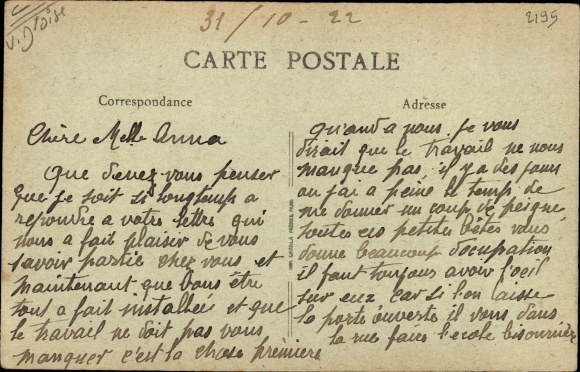 V. d'Oise
31/10-22
2195
CARTE POSTALE
Correspondance
Adresse
Chère Melle Anna
Que devez vous penser
que je soit si longtemps a
repondre a votre lettre qui
nous a fait plaisir de vous
savoir partie chez vous et
maintenant que vous être
tout a fait installée et que
le travail ne doit pas vous
manquer c'est la chose première
quand a nous je vous
dirait que le travail ne nous
manque pas, il y a des jours
ou j'ai a peine le temps de
me donner un coup de peigne,
toutes ces petites bêtes vous
donne beaucoup d'ocupation
il faut toujours avoir l'oeil
sur eux, car si l'on laisse
la porte ouverte il vous dans
la rue faire l'ecole bisonnière